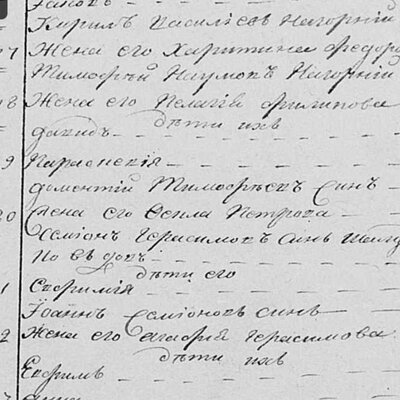 Кирилъ Василіевъ Нагорній
7 Жена его Харитина Федоро
Тимофѣй Наумовъ Нагорній
8 Жена его Пелагія Филипова
дѣти ихъ
давидъ
9 Параскевія
дометній Тимофѣевъ Синъ
20 Жена его Петрова
Симіонъ Герасимовъ Синъ
по вдовъ
дѣти его
1 Евфимія
Іоаннъ Семіоновъ Синъ
2 Жена его Агафія Герасимова
дѣти ихъ
Евфимъ